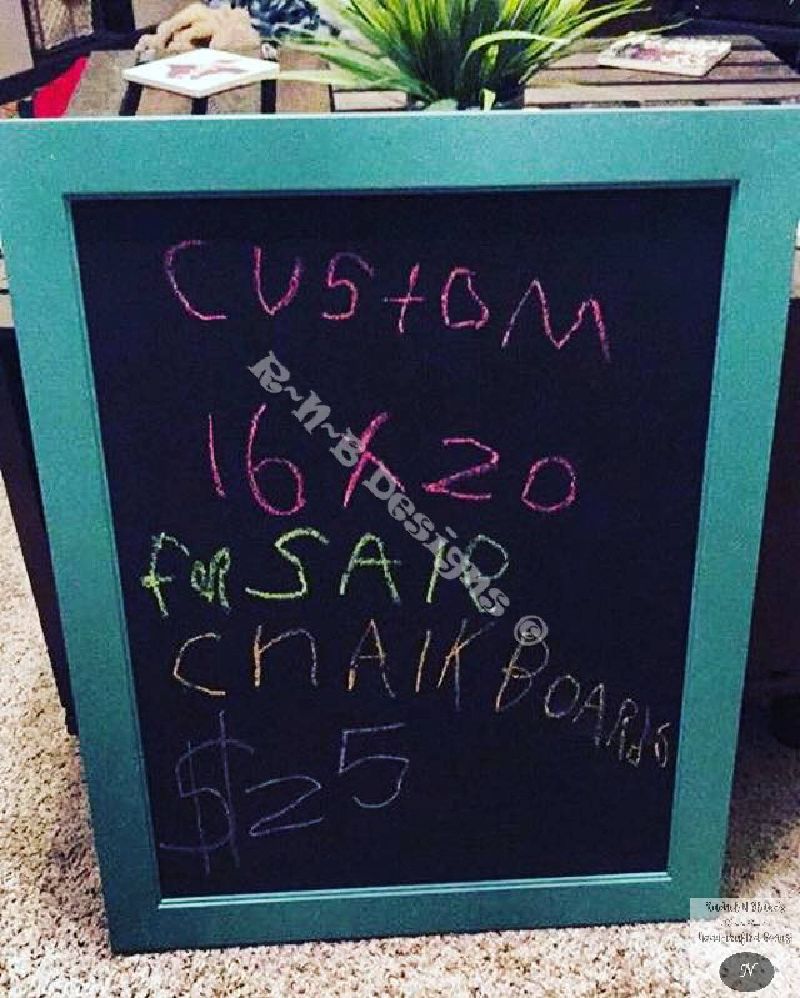 CUStOM
16X20
foR SAlR
CHAlK BOARds
$25
R~N~B Designs ©
N